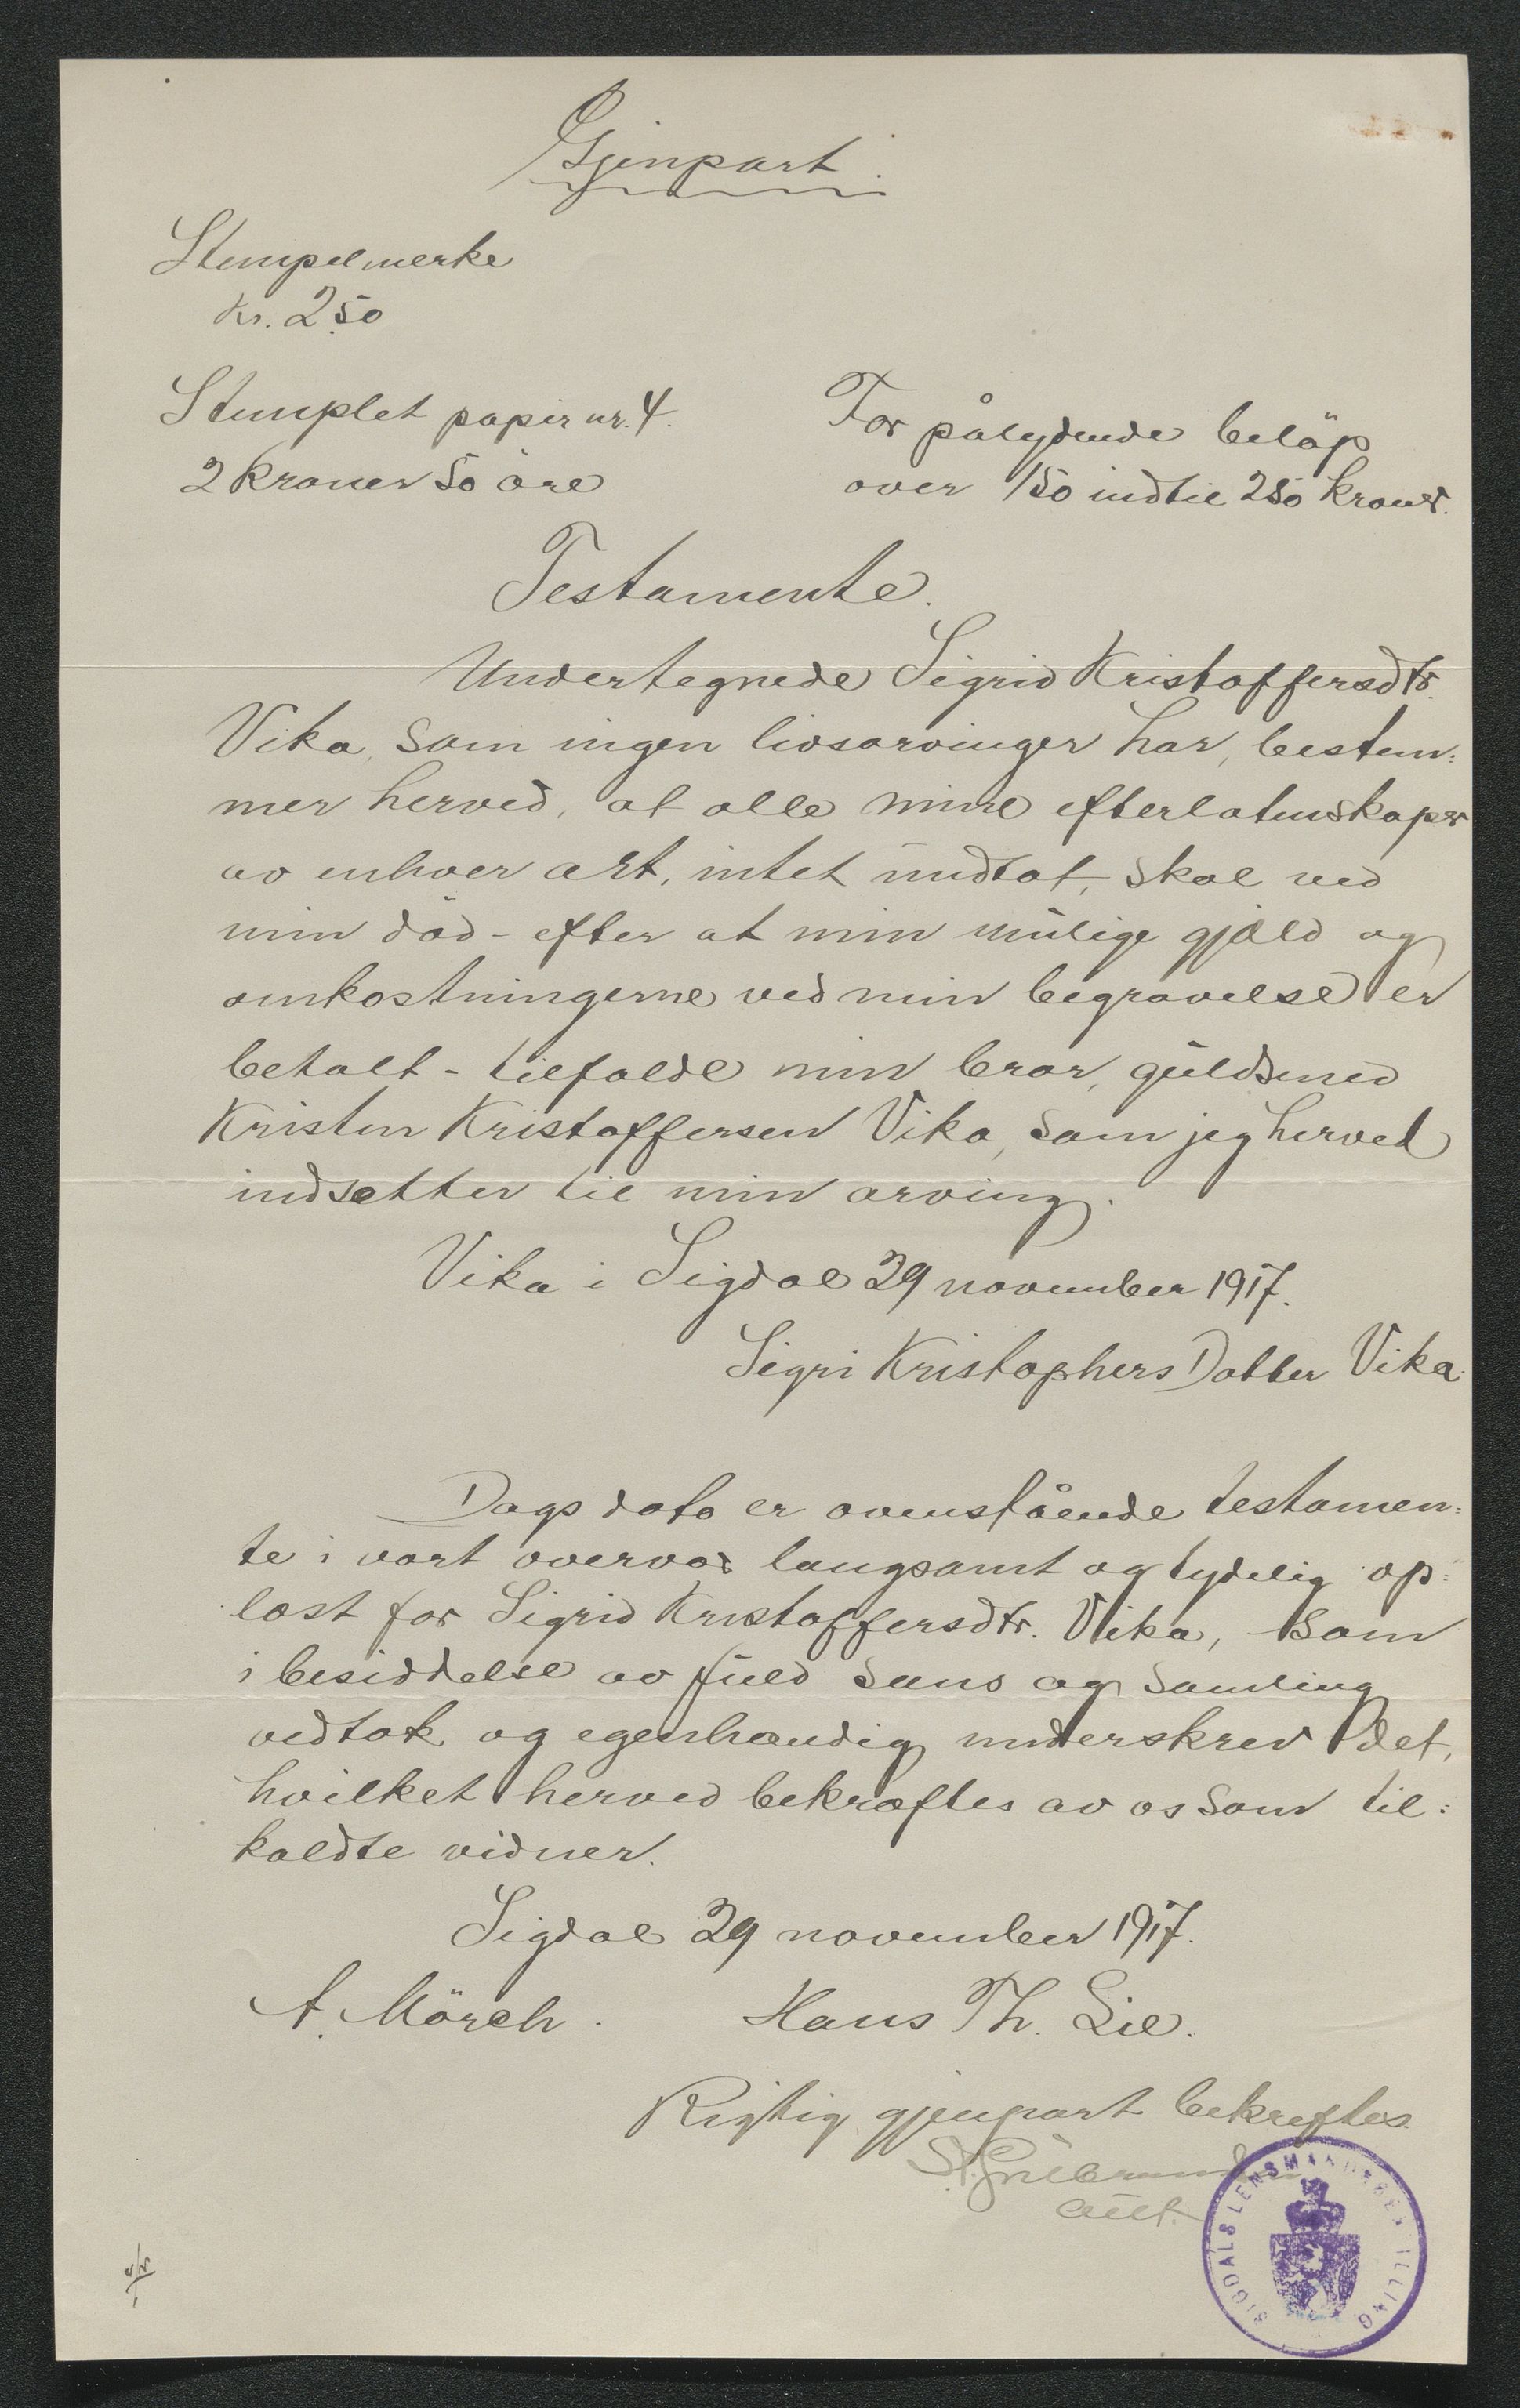 Gjenpart.
Stempelmerke
Kr. 2.50
Stemplet papir nr. 4.
2 Kroner 50 öre
For pålydende belöp
over 150 indtil 250 kroner.
Testamente.
Undertegnede Sigrid Kristoffersdtr.
Vika, som ingen livsarvinger har, bestem:
mer herved, at alle mine efterlatenskaper
av enhver art, intet undtat, skal ved
min död - efter at min mulige gjæld og
omkostningerne ved min begravelse er
betalt - tilfalde min bror, guldsmed
Kristen Kristoffersen Vika, som jeg herved
indsætter til min arving.
Vika i Sigdal 29 november 1917.
Sigri Kristophers Datter Vika.
Dags dato er ovenstående testamen:
te i vort overvær langsomt og tydelig op:
læst for Sigrid Kristoffersdtr. Vika, som
i besiddelse av fuld sans og samling
vedtok og egenhændig underskrev det,
hvilket herved bekræftes av os som til:
kaldte vidner.
Sigdal 29 november 1917.
A. Mörch. Hans Th. Lie.
Rigtig gjenpart bekreftes.
SIGDALS LENSMANDSBESTILLING